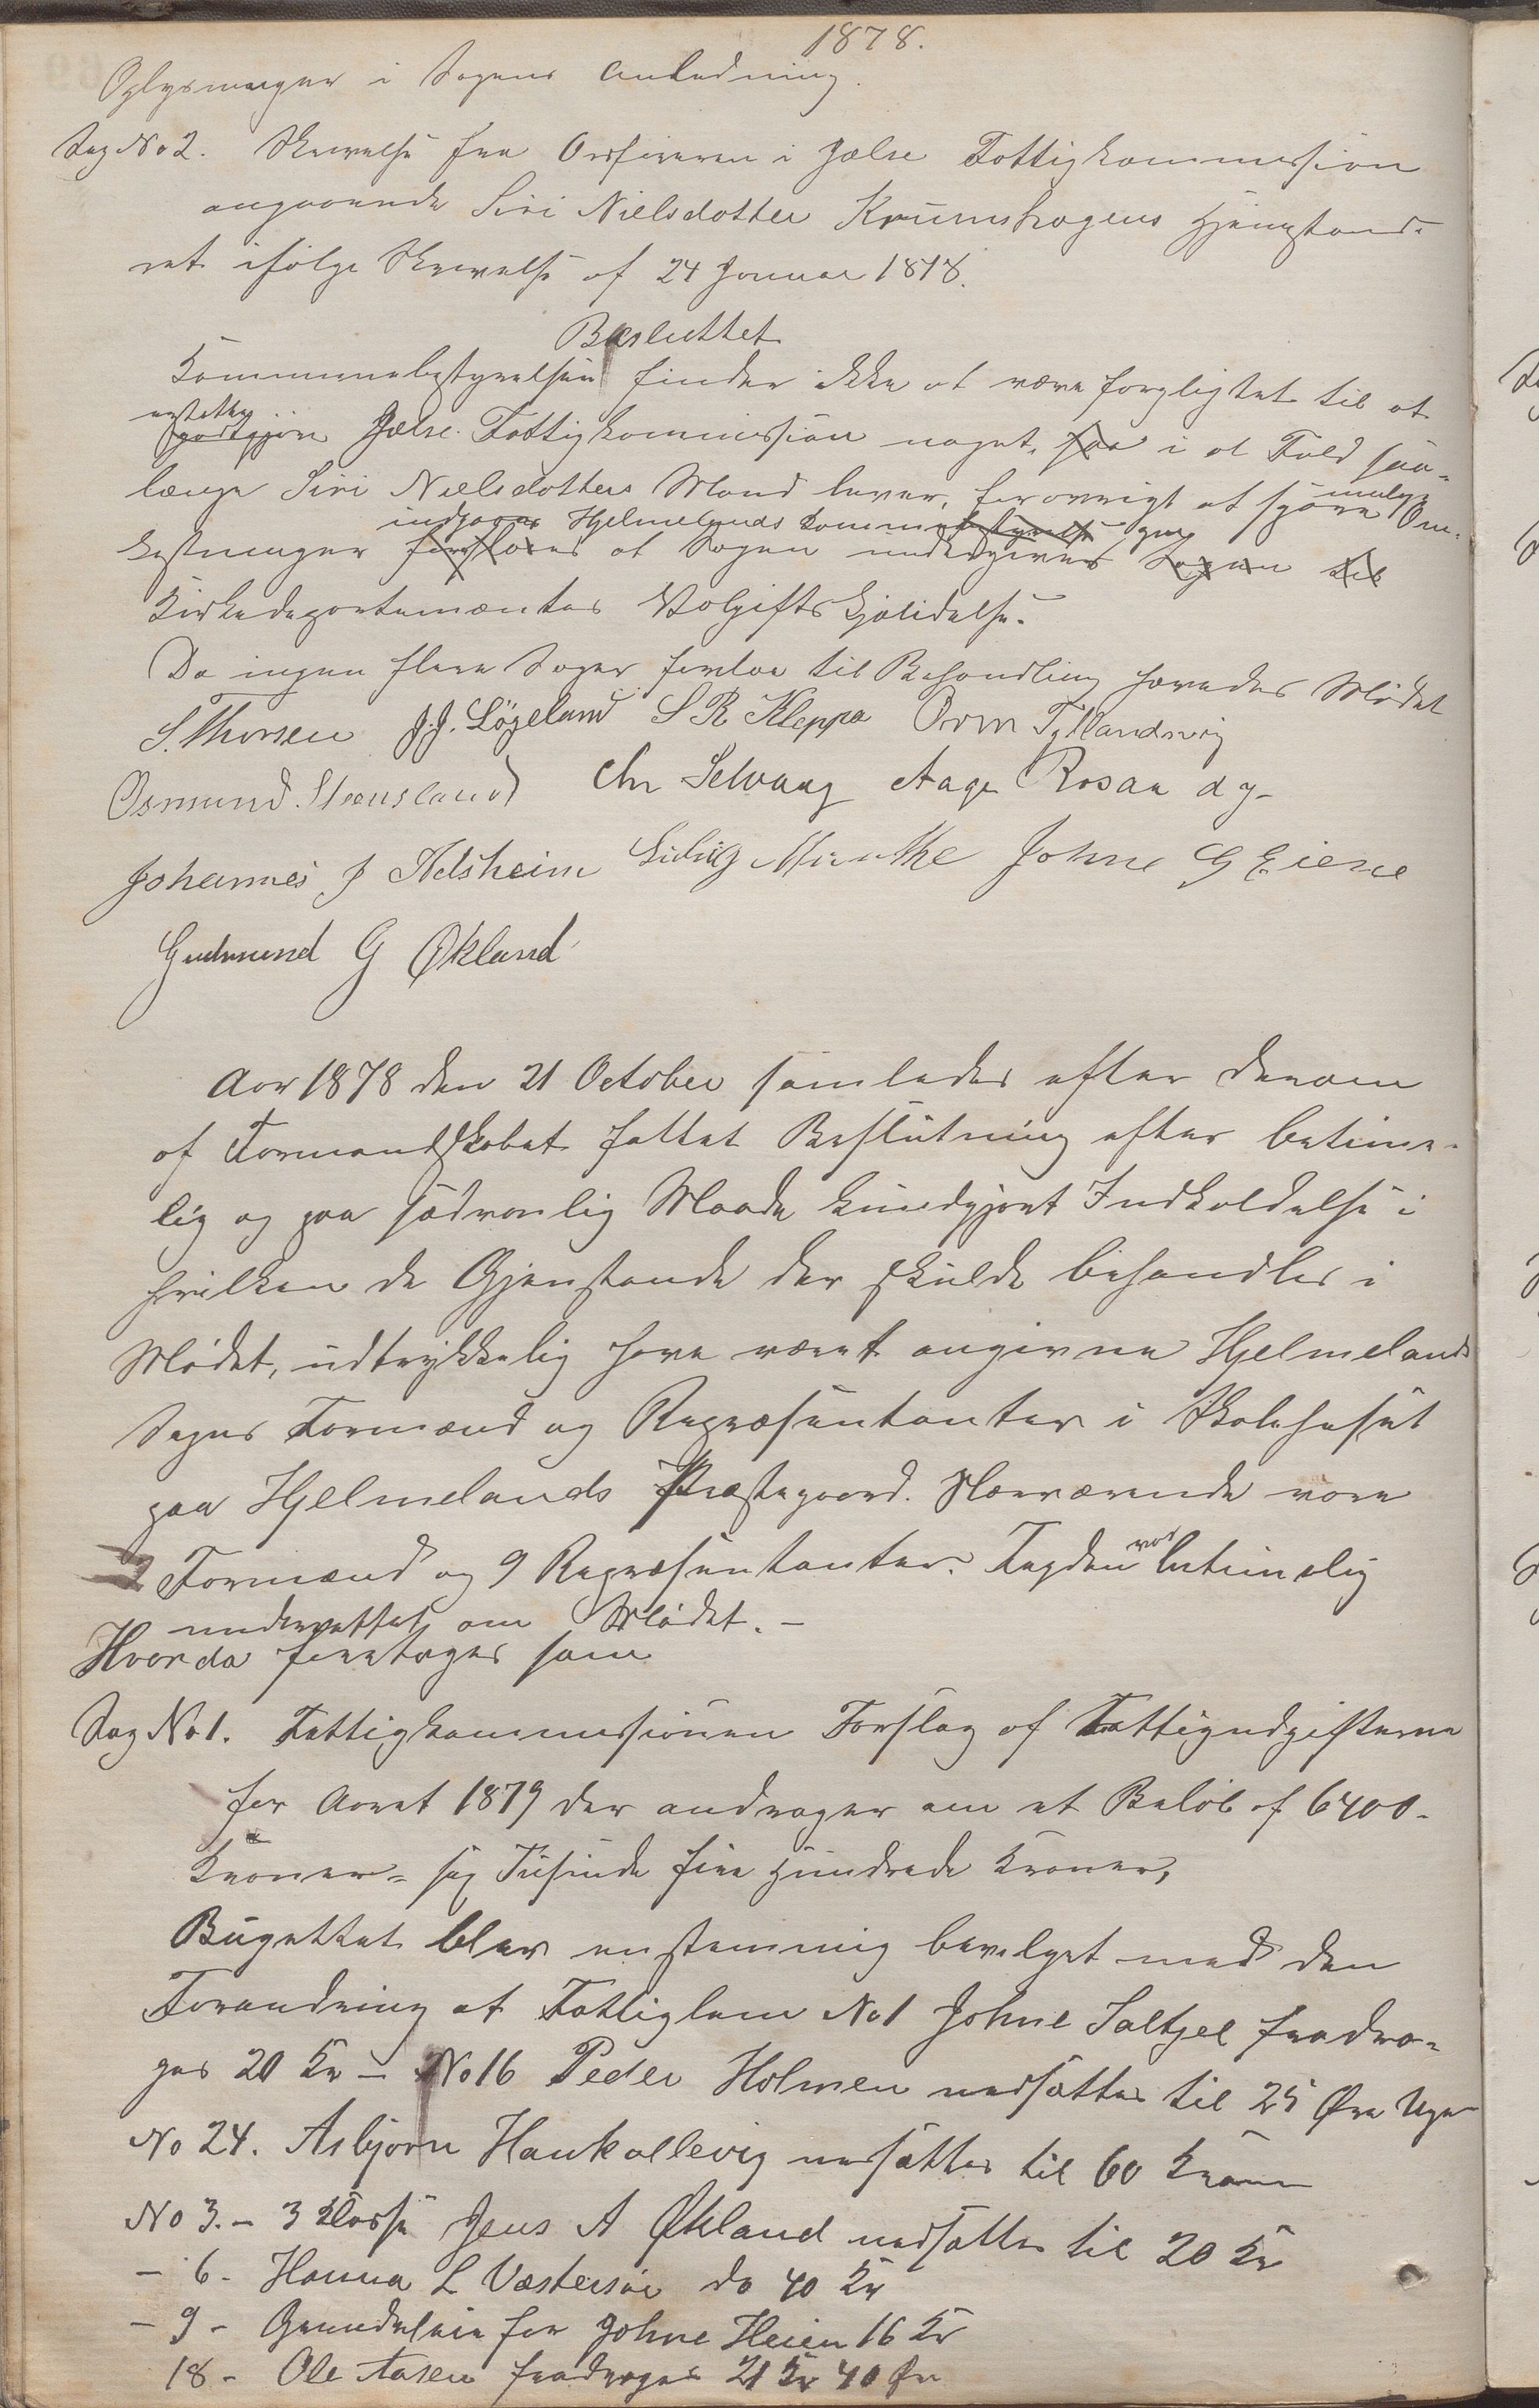 1878.
Oplysninger i Sagens Anledning.
Sag No 2. Skrivelse fra Ordføreren i Jælse Fattigkommission
angaaende Siri Nielsdotter Krumshagens Hjemstavns-
ret ifølge Skrivelse af 24 Januar 1878.
Besluttet
Kommunebestyrelsen finder ikke at være forpligtet til at
erstatte
godtgjøre Jælse Fattigkommission noget, saa i al Fald saa-
længe Siri Nielsdotters Mand lever, forøvrigt at spare mulige Om-
indgaaes Hjelmelands Kommunebestyrelse
kostninger foreslaaes at Sagen undergives Sagen til
Kirkedepartementes Volgiftskjendelse.
Da ingen flere Sager forelaa til Behandling hævedes Mødet
S. Thorsen J. J. Løgeland S R Kleppa Orm Tytlandsvig
Osmund Steensland Chr Selvaag Aage Rosaa dy-
Johannes J Helsheim Ludvig Munthe Johne G Eiene
Gudmund G Økland
Aar 1878 den 21 October samledes efter derom
af Formandskabet fattet Beslutning efter betime-
lig og paa sædvanlig Maade kundgjort Indkaldelse i
hvilken de Gjenstande der skulde behandles i
Mødet, udtrykkelig have været angivne Hjelmelands
Sogns Formænd og Repræsentanter i Skolehuset
paa Hjelmelands Præstegaard. Nærværende vare
2 Formænd og 9 Repræsentanter. Fogden var betimelig
underrettet om Mødet. –
Hvorda foretoges som
Sag No 1. Fattigkommissionen Forslag af Fattigudgifterne
for Aaret 1879 der andrager om et Beløb af 6400-
Kroner - sex Tusinde fire Hundrede Kroner,
Bugettet blev enstemmig bevilget med den
Forandring at Fattiglem No 1 Johne Saltjel fradra-
ges 20 Kr – No 16 Peder Holmen nedsættes til 25 Øre Ugen
No 24. Asbjørn Haukallevig nedsættes til 60 Kroner
No 3. – 3 Klasse Jens A Økland nedsættes til 20 Kr
– 6 - Hanna L Vestersøe do 40 Kr
– 9 - Grundeleie for Johne Heien 16 Kr
18 - Ole Aasen fradrages 21 Kr 40 Øre